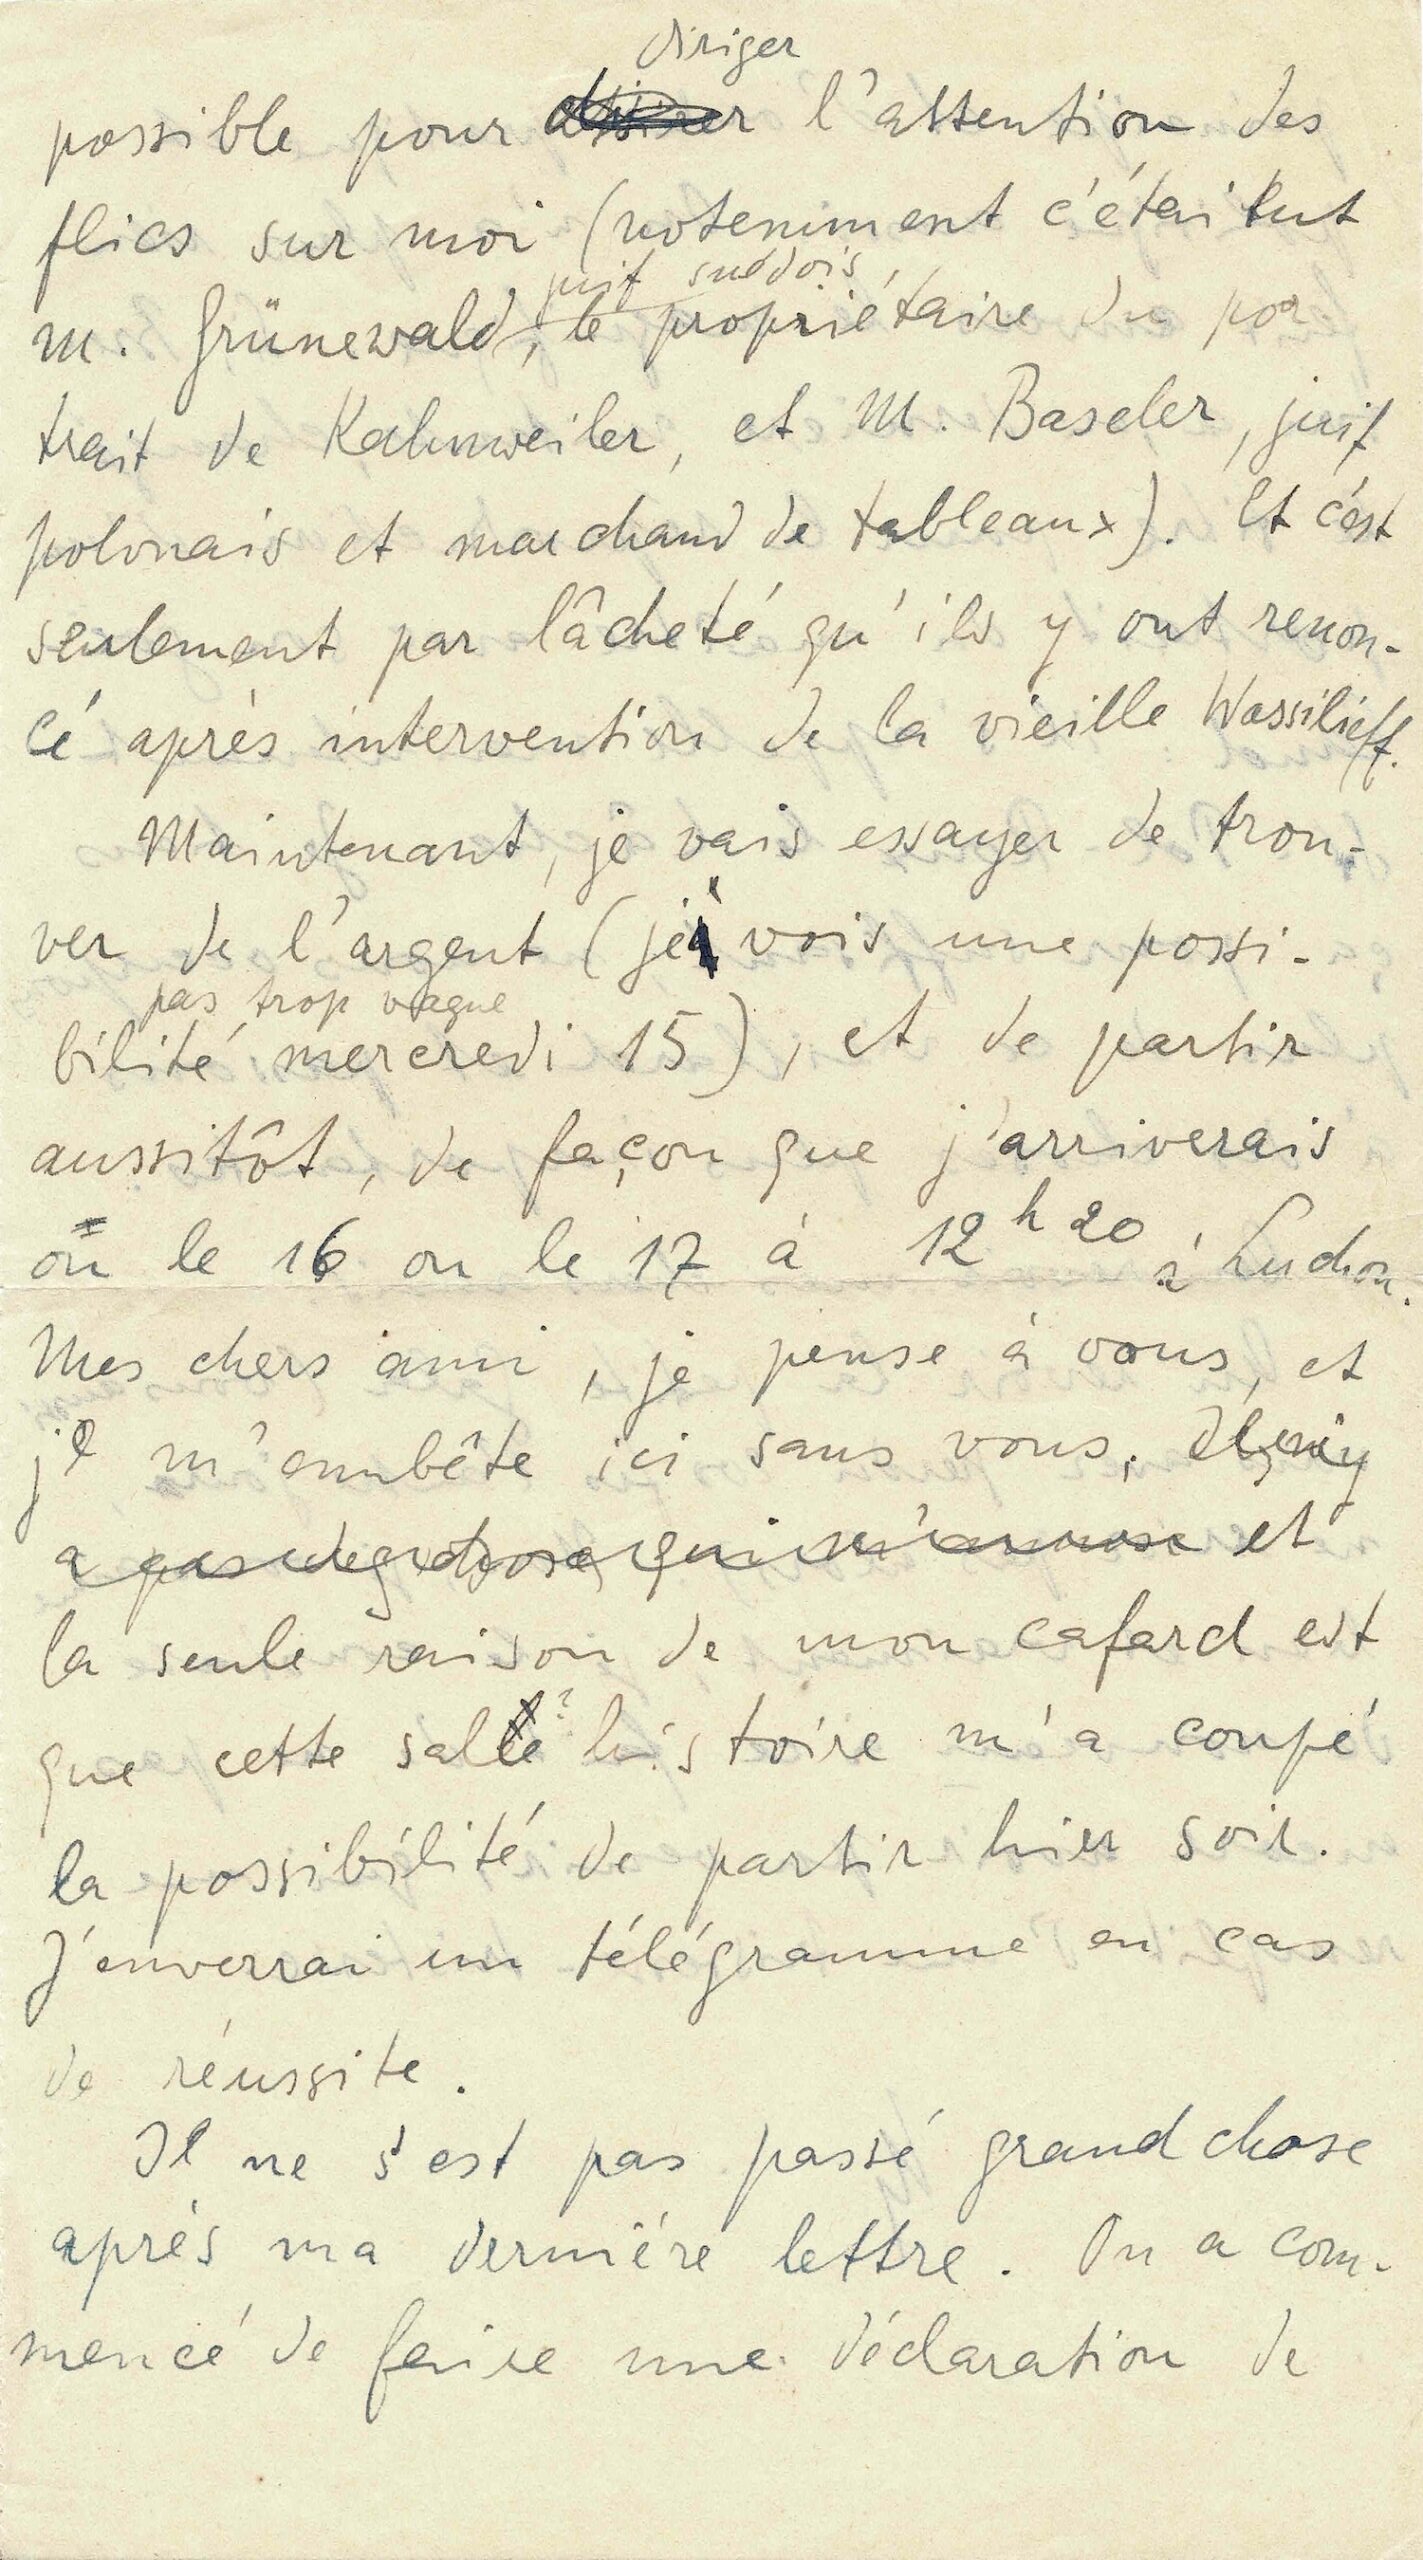 diriger
possible pour l'attention des
flics sur moi (notemment c'était
juif suédois,
M. Grünewald, le propriétaire du por
trait de Kahnweiler, et M. Baseler, juif
polonais et marchand de tableaux). Et c'est
seulement par lâcheté qu'ils y ont renon-
cé après intervention de la vieille Wassilieff.
Maintenant, je vais essayer de trou-
ver de l'argent (je vois une possi-
pas trop vague
bilité mercredi 15), et de partir
aussitôt, de façon que j'arriverais
ou le 16 ou le 17 à 12h20 à Luchon.
Mes chers ami, je pense à vous, et
je m'embête ici sans vous, Il n'y
a pas de gd chose qui m'amuse et
la seule raison de mon cafard est
que cette sale? histoire m'a coupé
la possibilité de partir hier soir.
J'enverrai un télégramme en cas
de réussite.
Il ne s'est pas passé grand chose
après ma dernière lettre. On a com-
mencé de faire une déclaration de